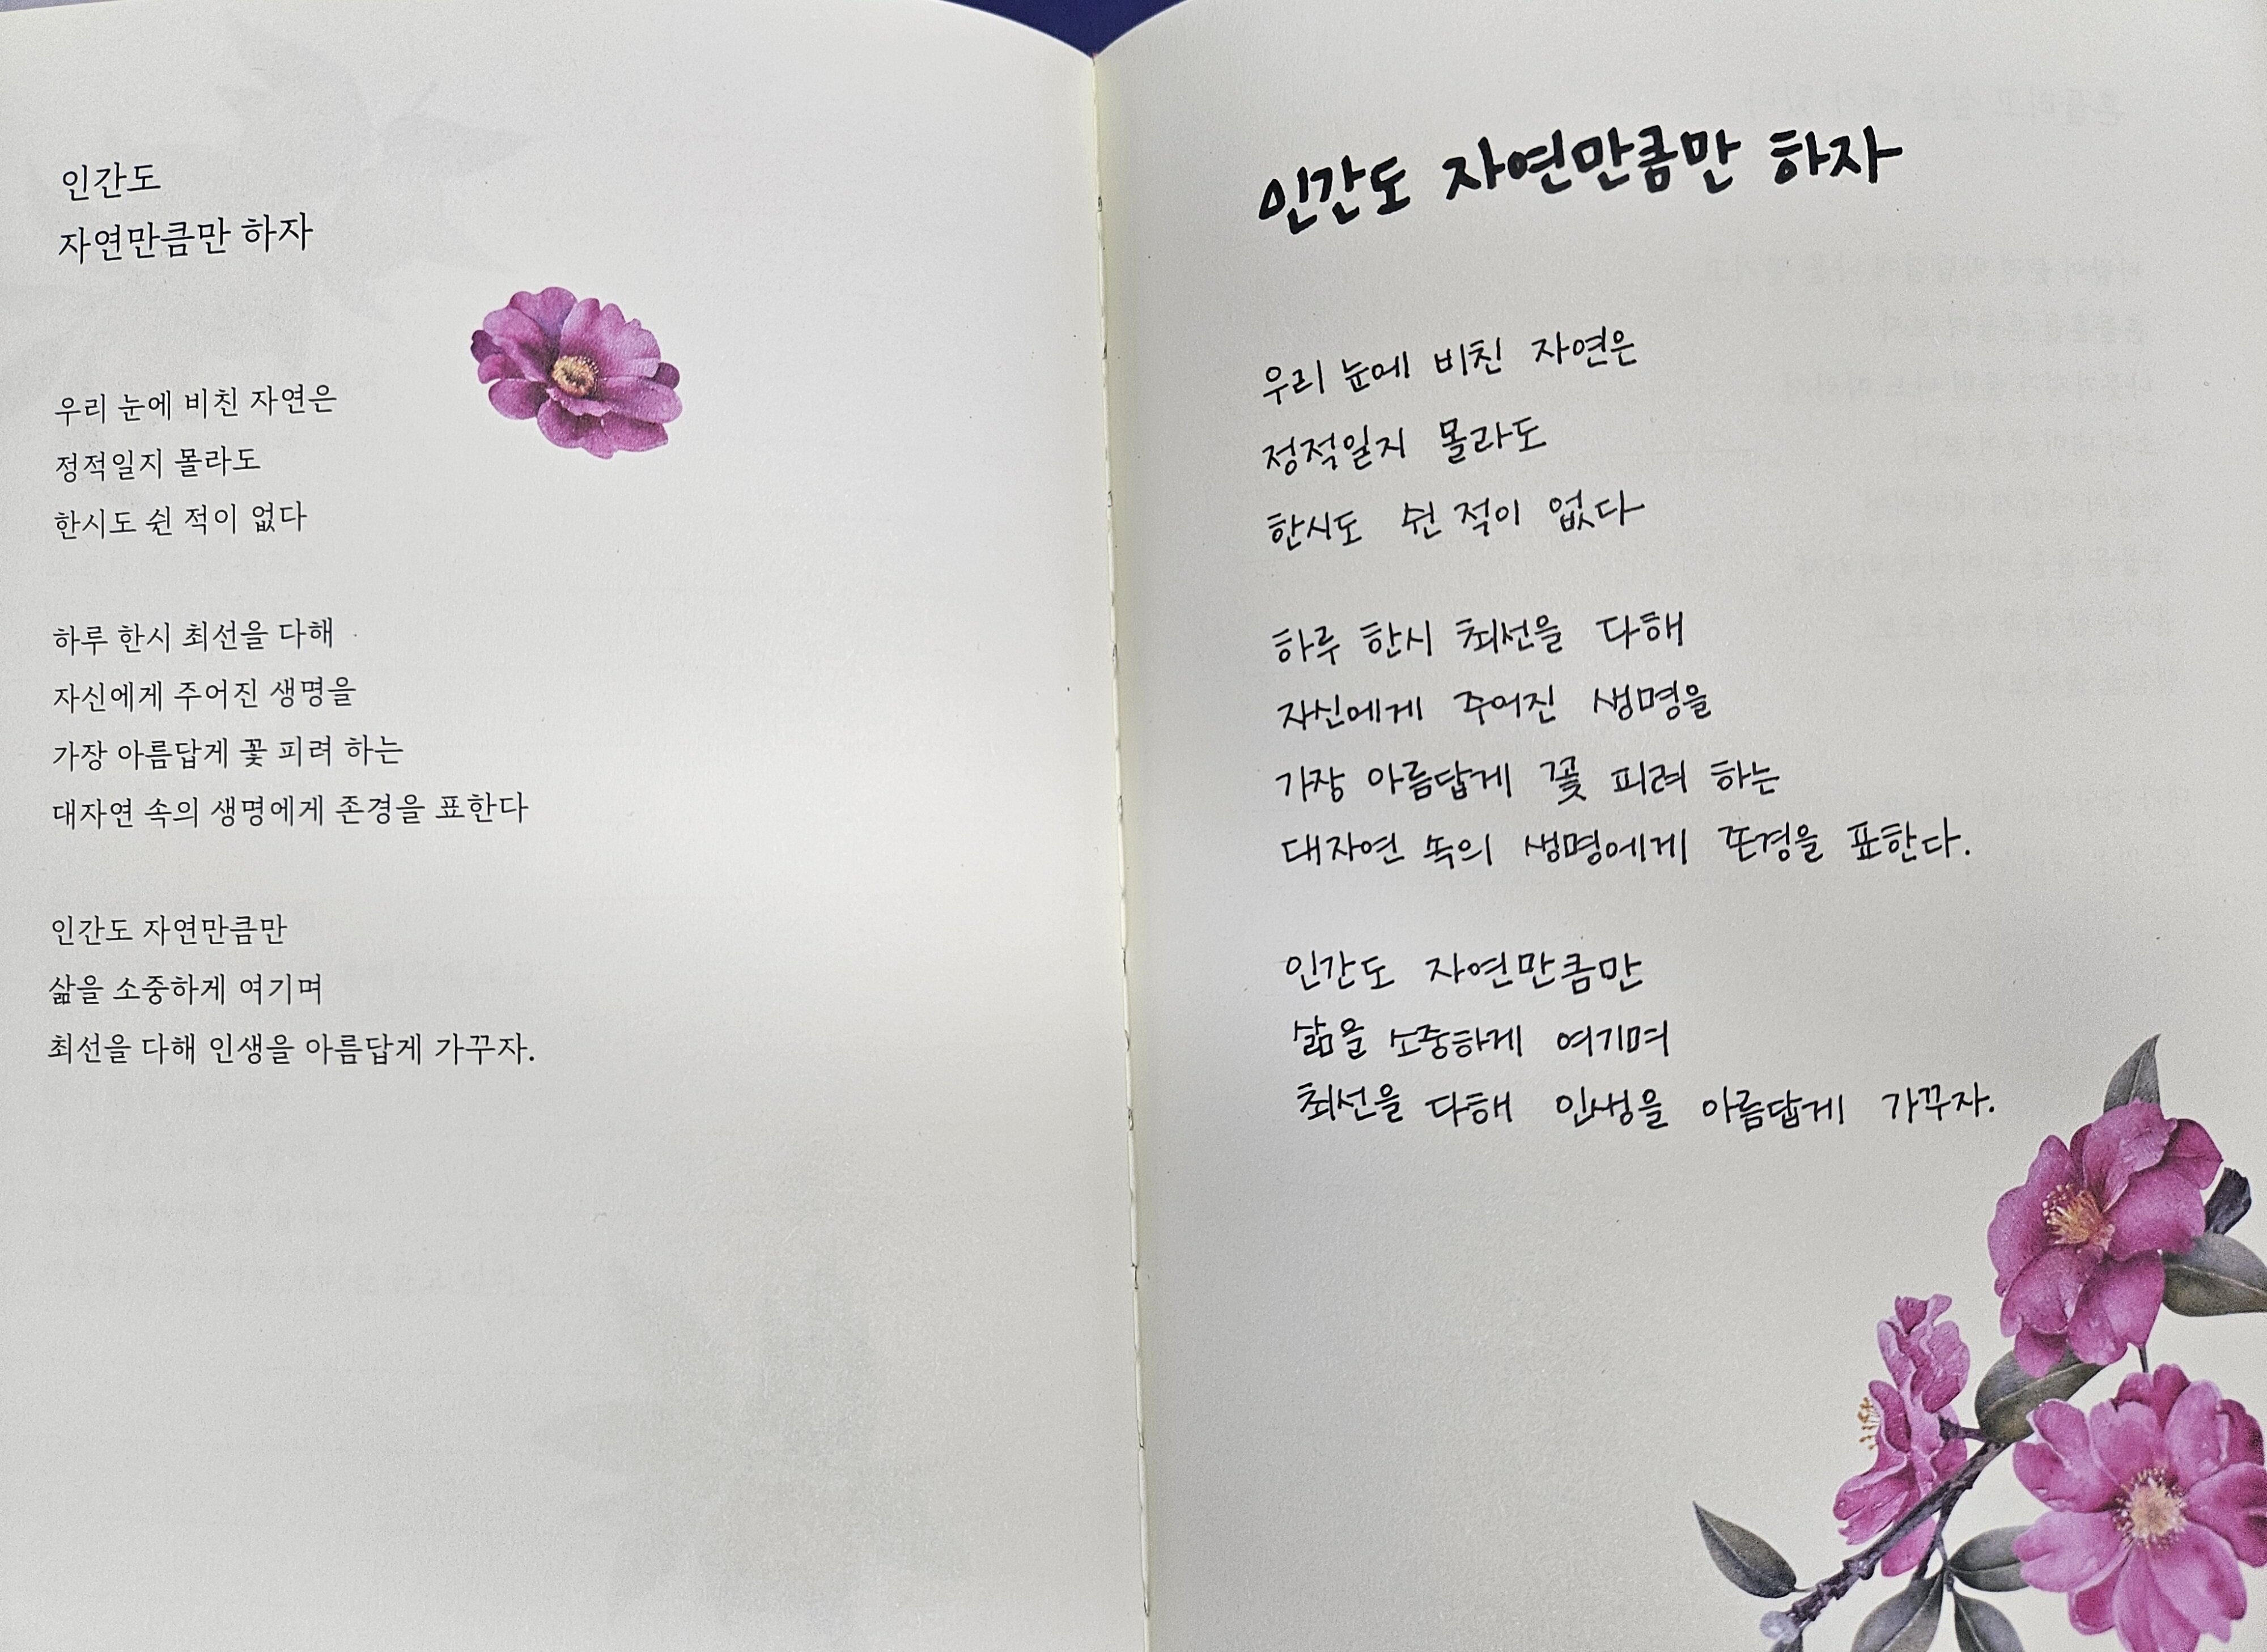 인간도
자연만큼만 하자
우리 눈에 비친 자연은
정적일지 몰라도
한시도 쉰 적이 없다
하루 한시 최선을 다해
자신에게 주어진 생명을
가장 아름답게 꽃 피려 하는
대자연 속의 생명에게 존경을 표한다
인간도 자연만큼만
삶을 소중하게 여기며
최선을 다해 인생을 아름답게 가꾸자.
인간도 자연만큼만 하자
우리 눈에 비친 자연은
정적일지 몰라도
한시도 쉰 적이 없다
하루 한시 최선을 다해
자신에게 주어진 생명을
가장 아름답게 꽃 피려 하는
대자연 속의 생명에게 존경을 표한다.
인간도 자연만큼만
삶을 소중하게 여기며
최선을 다해 인생을 아름답게 가꾸자.